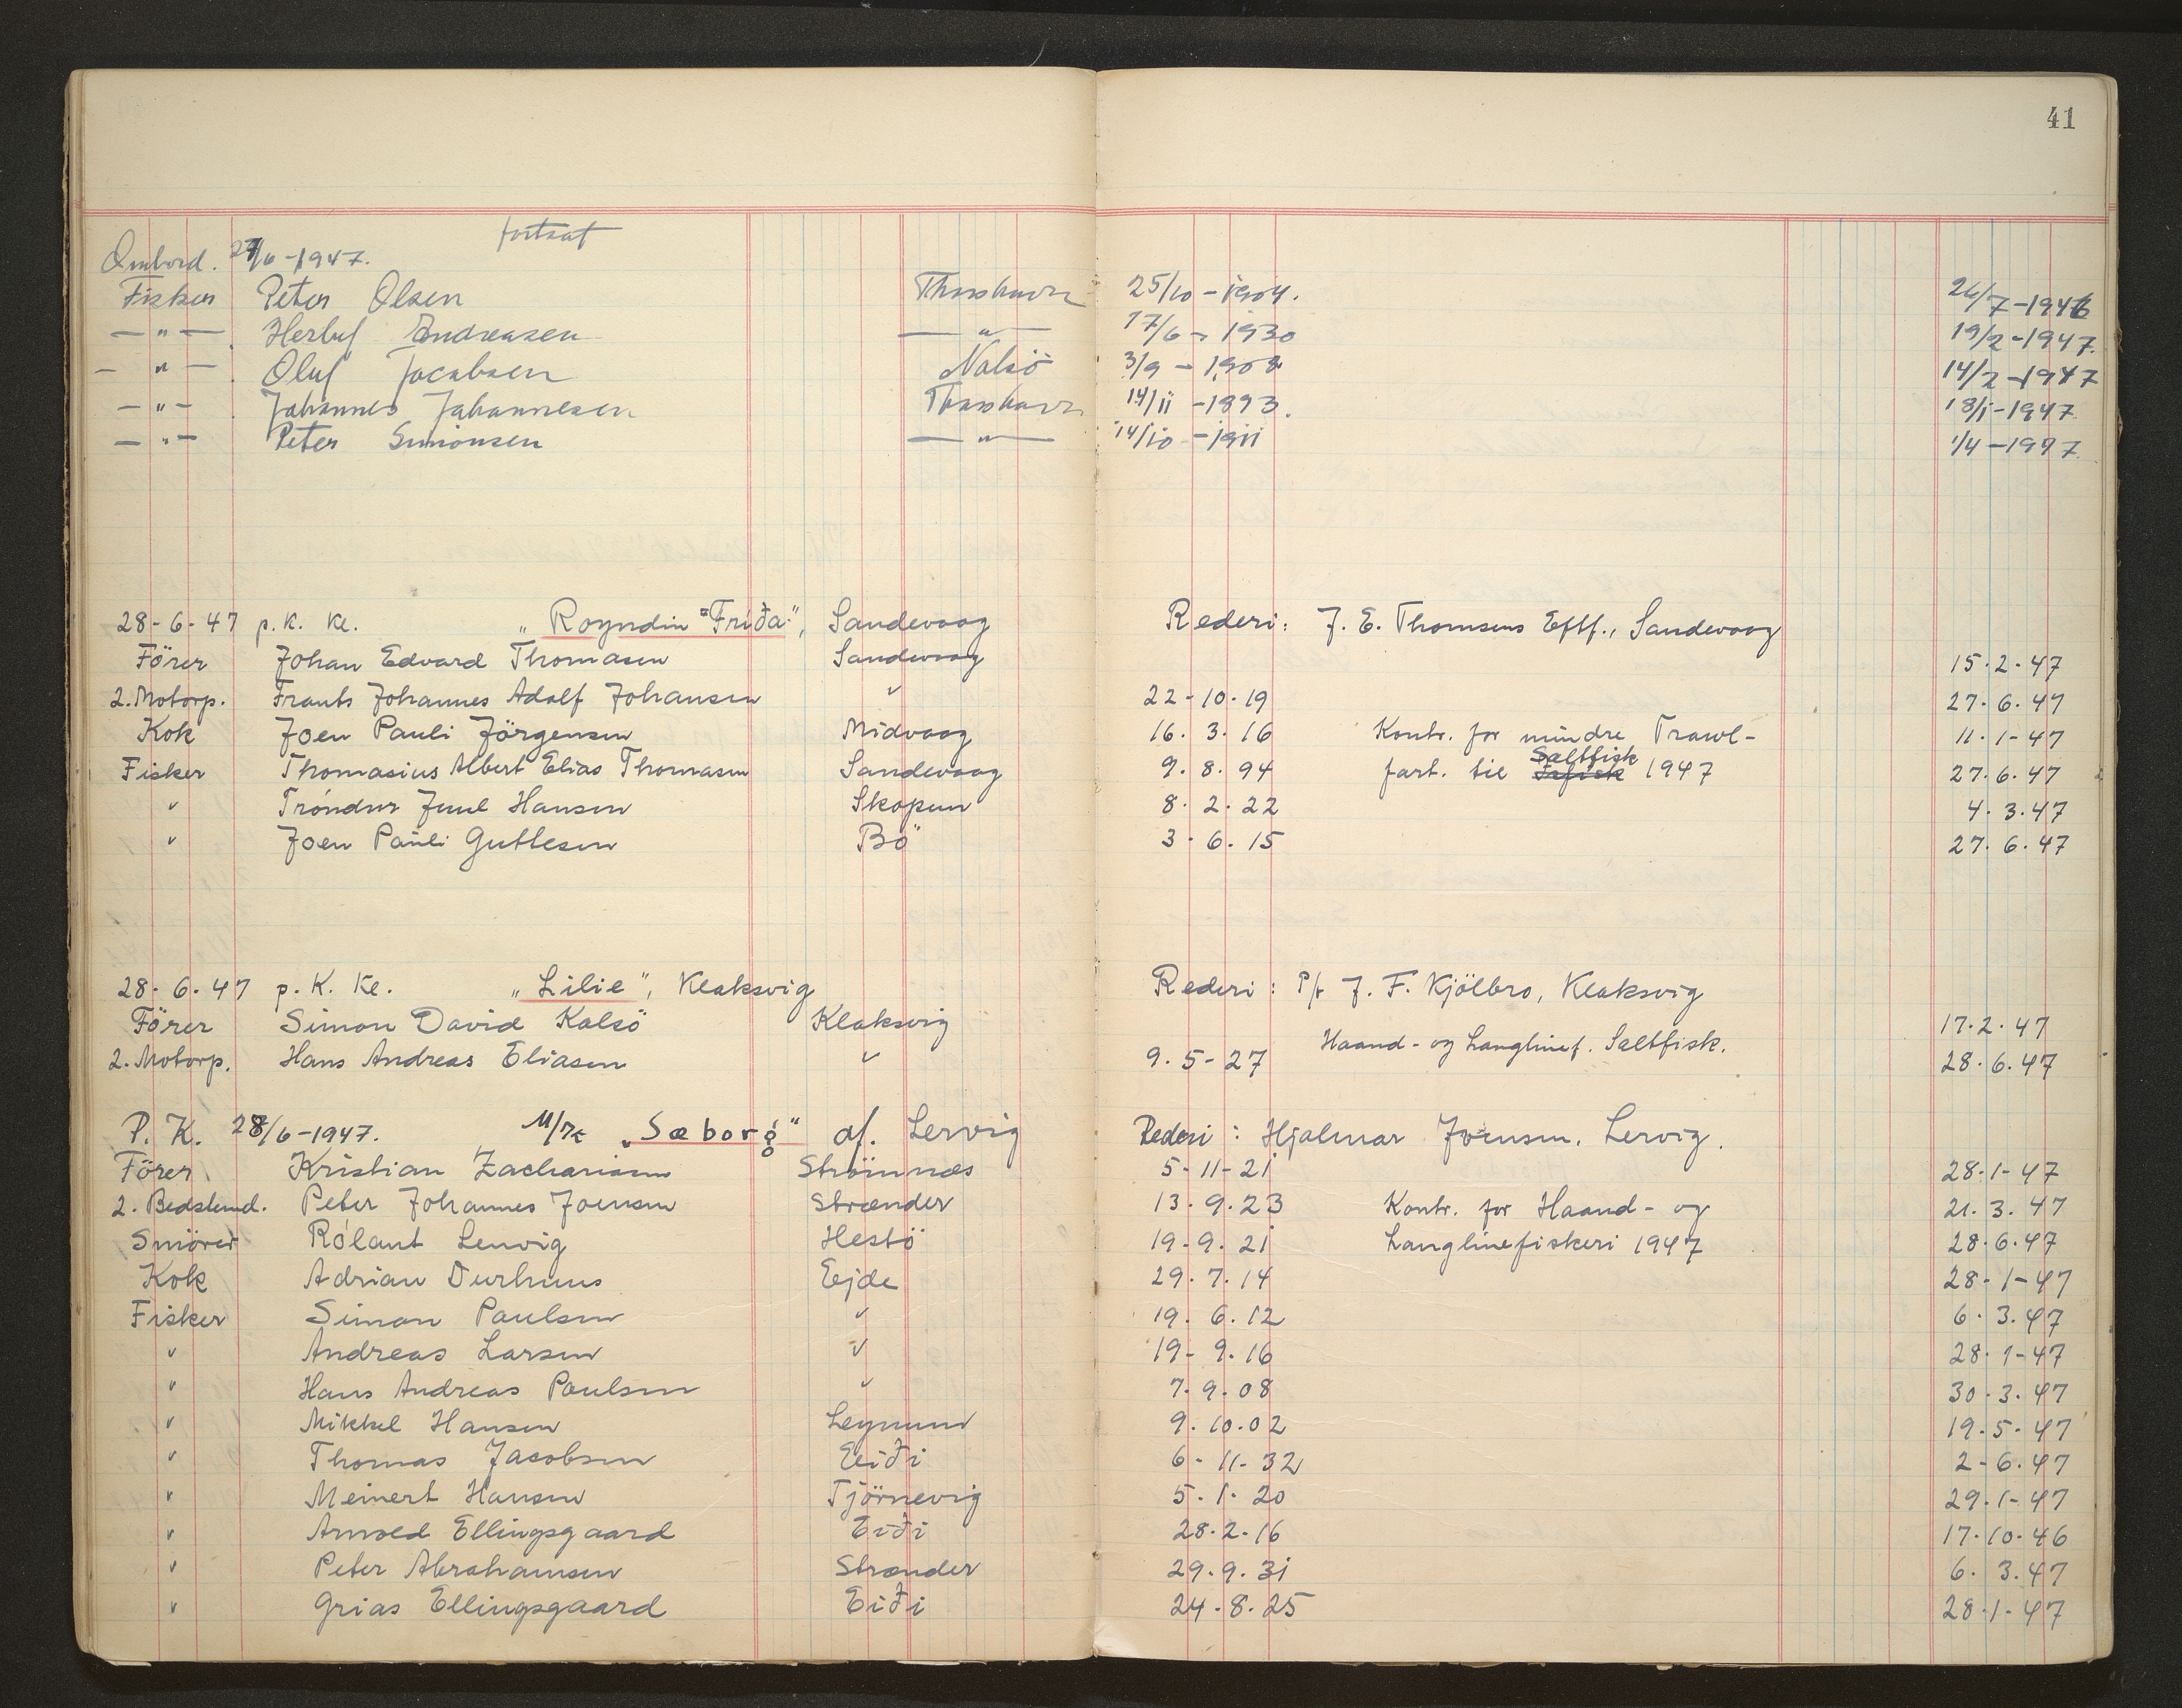 41
fortsat
Ombord. 27/6-1947.
Fisker Peter Olsen Thorshavn 25/10-1904. 26/7-1946
—"— Herluf Andreasen —"— 17/6-1930 19/2-1947.
—"— Oluf Jacobsen Nolsö 3/9-1908 14/2-1947
—"— Johannes Johannesen Thorshavn 14/11-1893. 18/1-1947
—"— Peter Simonsen —"— 14/10-1911 1/4-1947.
28-6-47 p. K. Kl. "Royndin Fríða", Sandevaag Rederi: J. E. Thomsens Eftf., Sandevaag
Förer Johan Edvard Thomasen Sandevaag 15.2.47
2. Motorp. Frants Johannes Adolf Johansen " 22-10-19 27.6.47
Kok Joen Pauli Jörgensen Midvaag 16.3.16 Kontr. for mindre Trawl- 11.1-47
Fisker Thomasius Albert Elias Thomasen Sandevaag 9.8.94 fart. til Saltfisk 1947 27.6.47
" Tróndur Juul Hansen Skopun 8.2.22 4.3.47
" Joen Pauli Guttesen Bö 3.6.15 27.6.47
28.6.47 p. K. Kl. "Lilie", Klaksvig Rederi: P/f J. F. Kjölbro, Klaksvig
Förer Simon David Kalsö Klaksvig 17.2.47
Haand- og Langlinef. Saltfisk.
2. Motorp. Hans Andreas Eliasen " 9.5-27 28.6.47
P. K. 28/6-1947. M/Sk "Sæborg" af. Lervig Rederi: Hjalmar Joensen, Lervig.
Förer Kristian Zachariasen Strömnæs 5-11-21 28.1-47
2. Bedstmd. Peter Johannes Joensen Strænder 13.9.23 Kontr. for Haand- og 21.3.47
Smörer Rólant Lenvig Hestö 19-9.21 Langlinefiskeri 1947 28.6.47
Kok Adrian Durhuus Ejde 29.7.14 28-1-47
Fisker Simon Paulsen " 19.6.12 6.3.47
" Andreas Larsen " 19-9.16 28.1-47
" Hans Andreas Poulsen " 7.9.08 30.3.47
" Mikkel Hansen Leynum 9.10.02 19.5-47
" Thomas Jacobsen Eiði 6-11-32 2-6.47
" Meinert Hansen Tjörnevig 5.1.20 29.1-47
" Arnold Ellingsgaard Eiði 28.2.16 17.10.46
" Peter Abrahamsen Strænder 29.9.31 6.3.47
" Grias Ellingsgaard Eiði 24.8.25 28.1-47